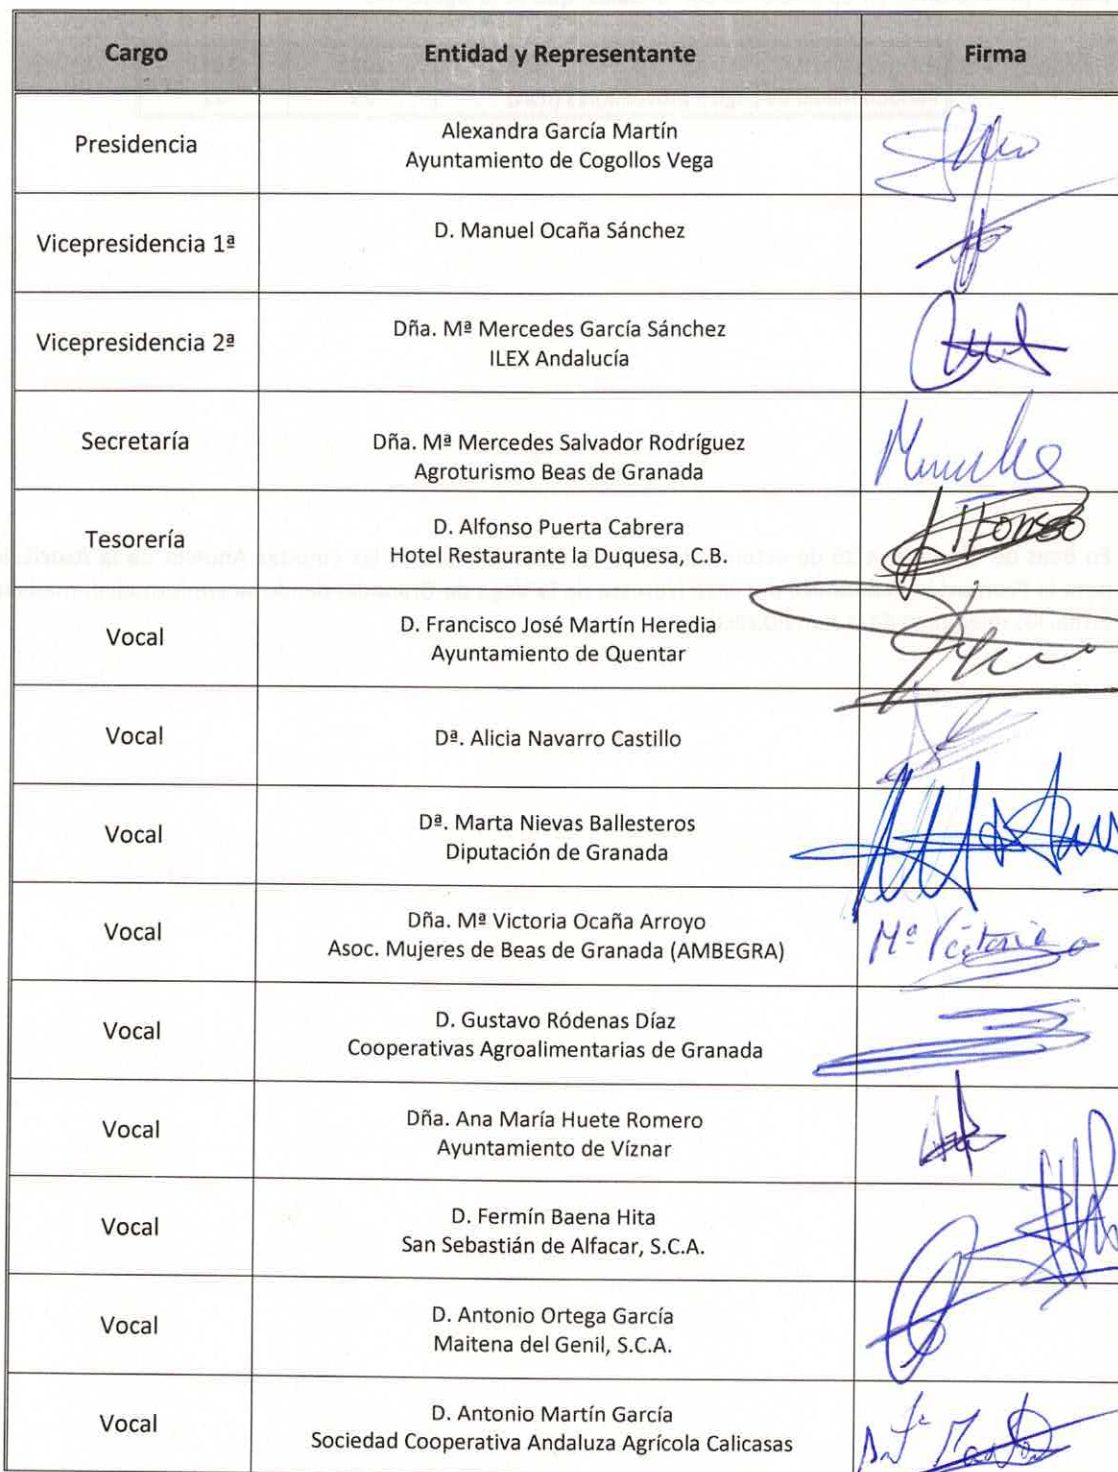 Cargo Entidad y Representante Firma
Presidencia
Alexandra García Martín
Ayuntamiento de Cogollos Vega
Vicepresidencia 1ª
D. Manuel Ocaña Sánchez
Vicepresidencia 2ª
Dña. Mª Mercedes García Sánchez
ILEX Andalucía
Secretaría
Dña. Mª Mercedes Salvador Rodríguez
Agroturismo Beas de Granada
Tesorería
D. Alfonso Puerta Cabrera
Hotel Restaurante la Duquesa, C.B.
Alfonso
Vocal
D. Francisco José Martín Heredia
Ayuntamiento de Quentar
Vocal
Dª. Alicia Navarro Castillo
Vocal
Dª. Marta Nievas Ballesteros
Diputación de Granada
Vocal
Dña. Mª Victoria Ocaña Arroyo
Asoc. Mujeres de Beas de Granada (AMBEGRA)
Mª Victoria
Vocal
D. Gustavo Ródenas Díaz
Cooperativas Agroalimentarias de Granada
Vocal
Dña. Ana María Huete Romero
Ayuntamiento de Víznar
Vocal
D. Fermín Baena Hita
San Sebastián de Alfacar, S.C.A.
Vocal
D. Antonio Ortega García
Maitena del Genil, S.C.A.
Vocal
D. Antonio Martín García
Sociedad Cooperativa Andaluza Agrícola Calicasas